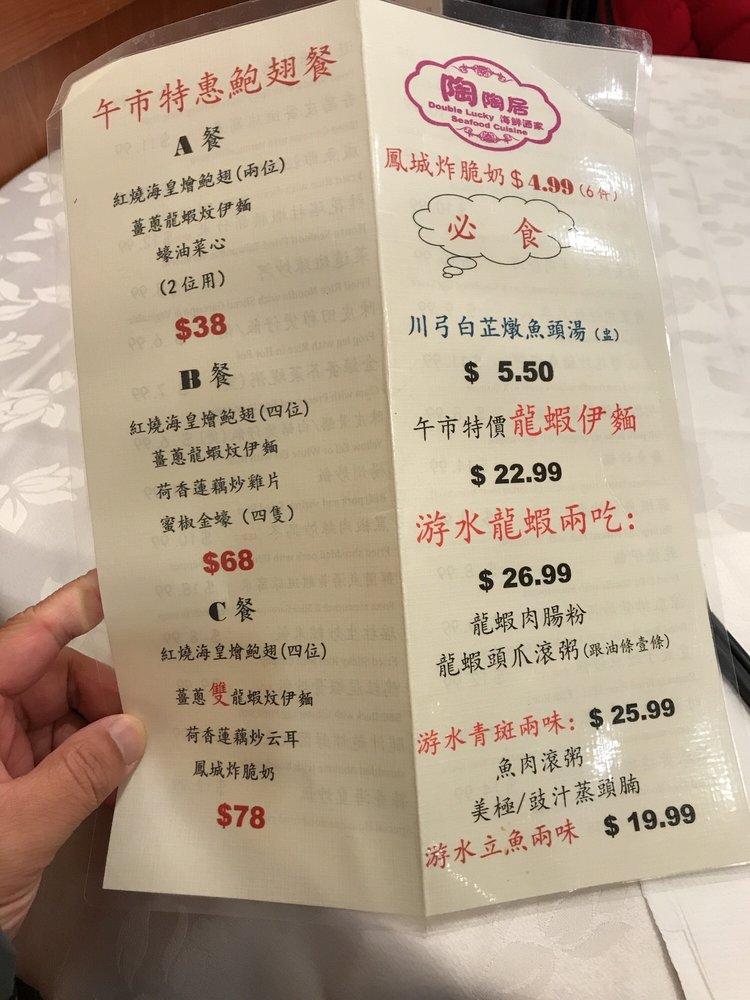 午市特惠鮑翅餐
A 餐
紅燒海皇燴鮑翅(兩位)
薑蔥龍蝦炆伊麵
蠔油菜心
(2位用)
$38
B 餐
紅燒海皇燴鮑翅(四位)
薑蔥龍蝦炆伊麵
荷香蓮藕炒雞片
蜜椒金蠔 (四隻)
$68
C 餐
紅燒海皇燴鮑翅(四位)
薑蔥雙龍蝦炆伊麵
荷香蓮藕炒云耳
鳳城炸脆奶
$78
陶陶居
Double Lucky 海鮮酒家
Seafood Cuisine
鳳城炸脆奶 $ 4.99 (6 件)
必 食
川弓白芷燉魚頭湯 (盅)
$ 5.50
午市特價龍蝦伊麵
$ 22.99
游水龍蝦兩吃:
$ 26.99
龍蝦肉腸粉
龍蝦頭爪滾粥(跟油條壹條)
游水青斑兩味: $ 25.99
魚肉滾粥
美極/豉汁蒸頭腩
游水立魚兩味 $ 19.99